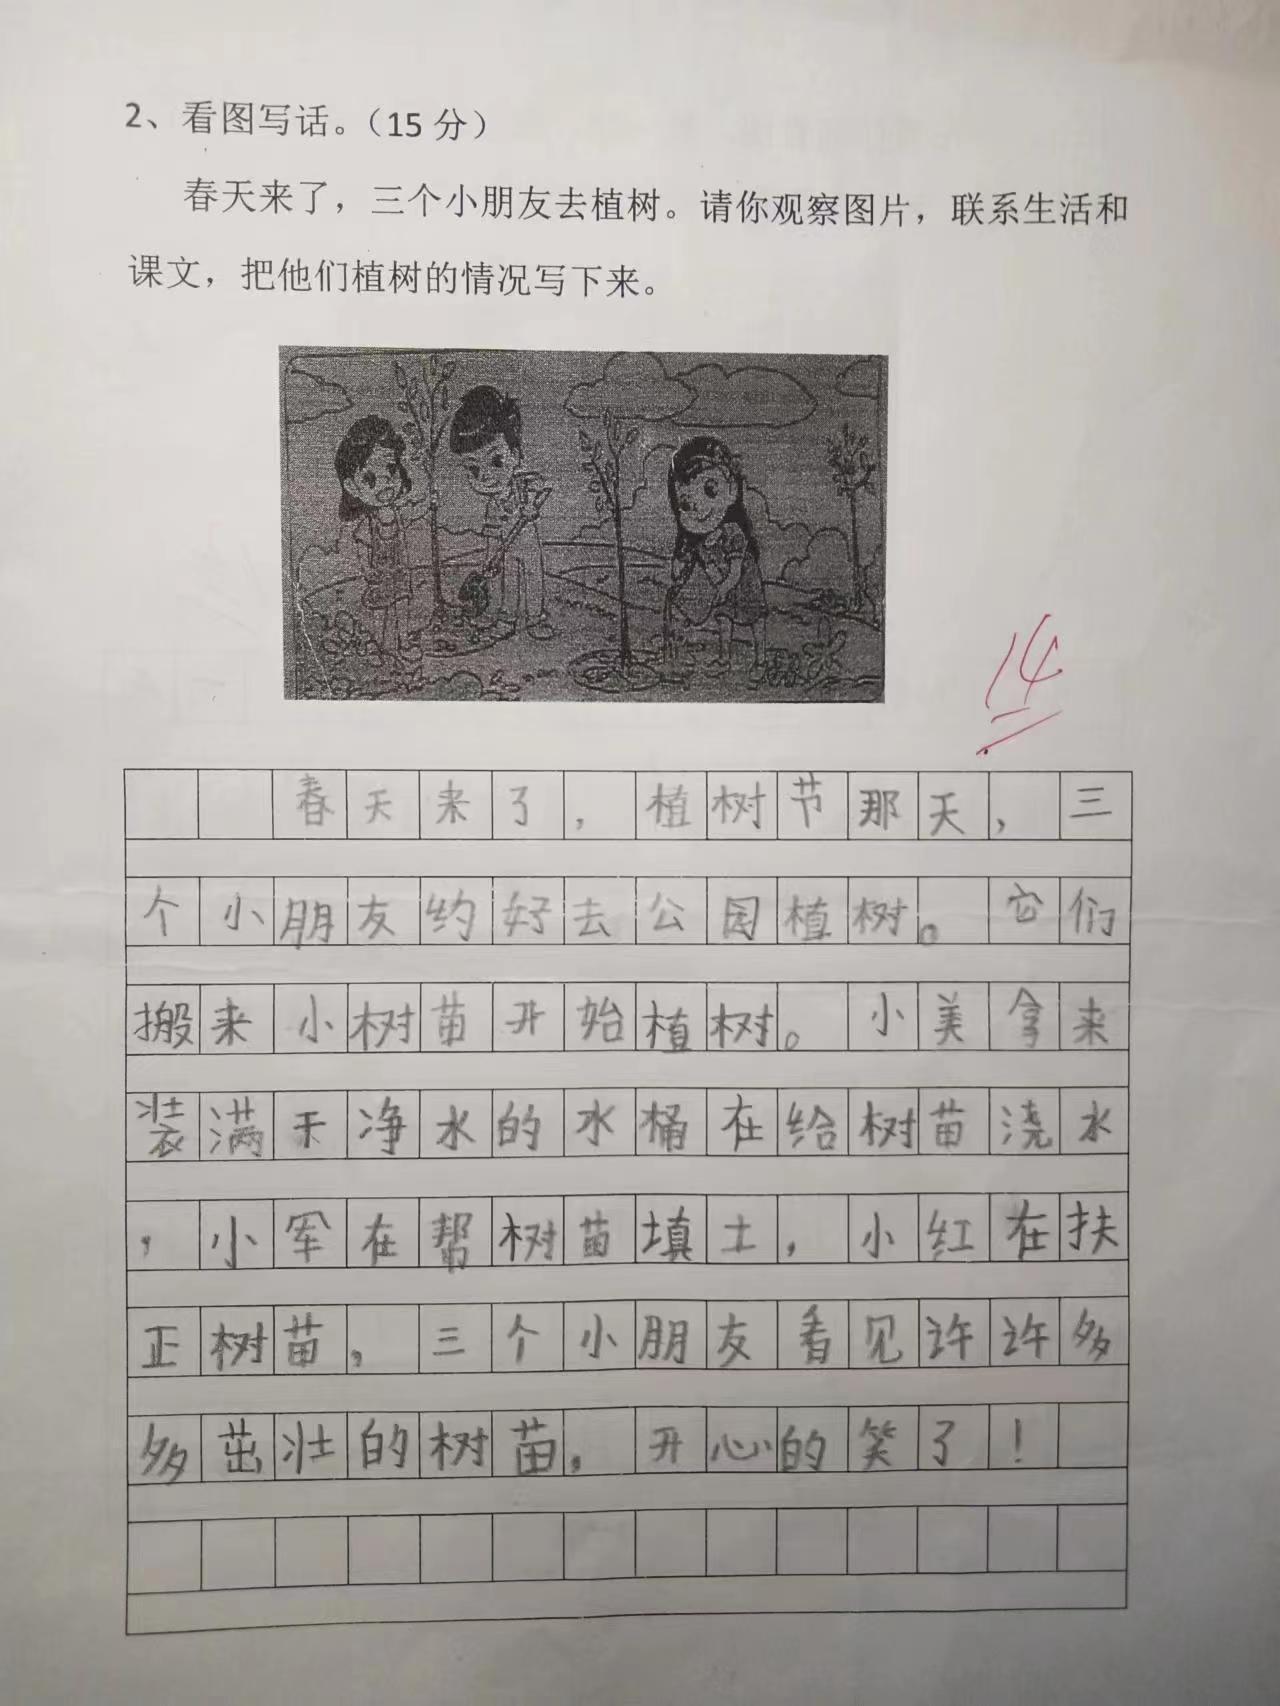 2、看图写话。（15 分）
春天来了，三个小朋友去植树。请你观察图片，联系生活和
课文，把他们植树的情况写下来。
14
春天来了，植树节那天，三
个小朋友约好去公园植树。它们
搬来小树苗开始植树。小美拿来
装满干净水的水桶在给树苗浇水
，小军在帮树苗填土，小红在扶
正树苗，三个小朋友看见许许多
多茁壮的树苗，开心的笑了！